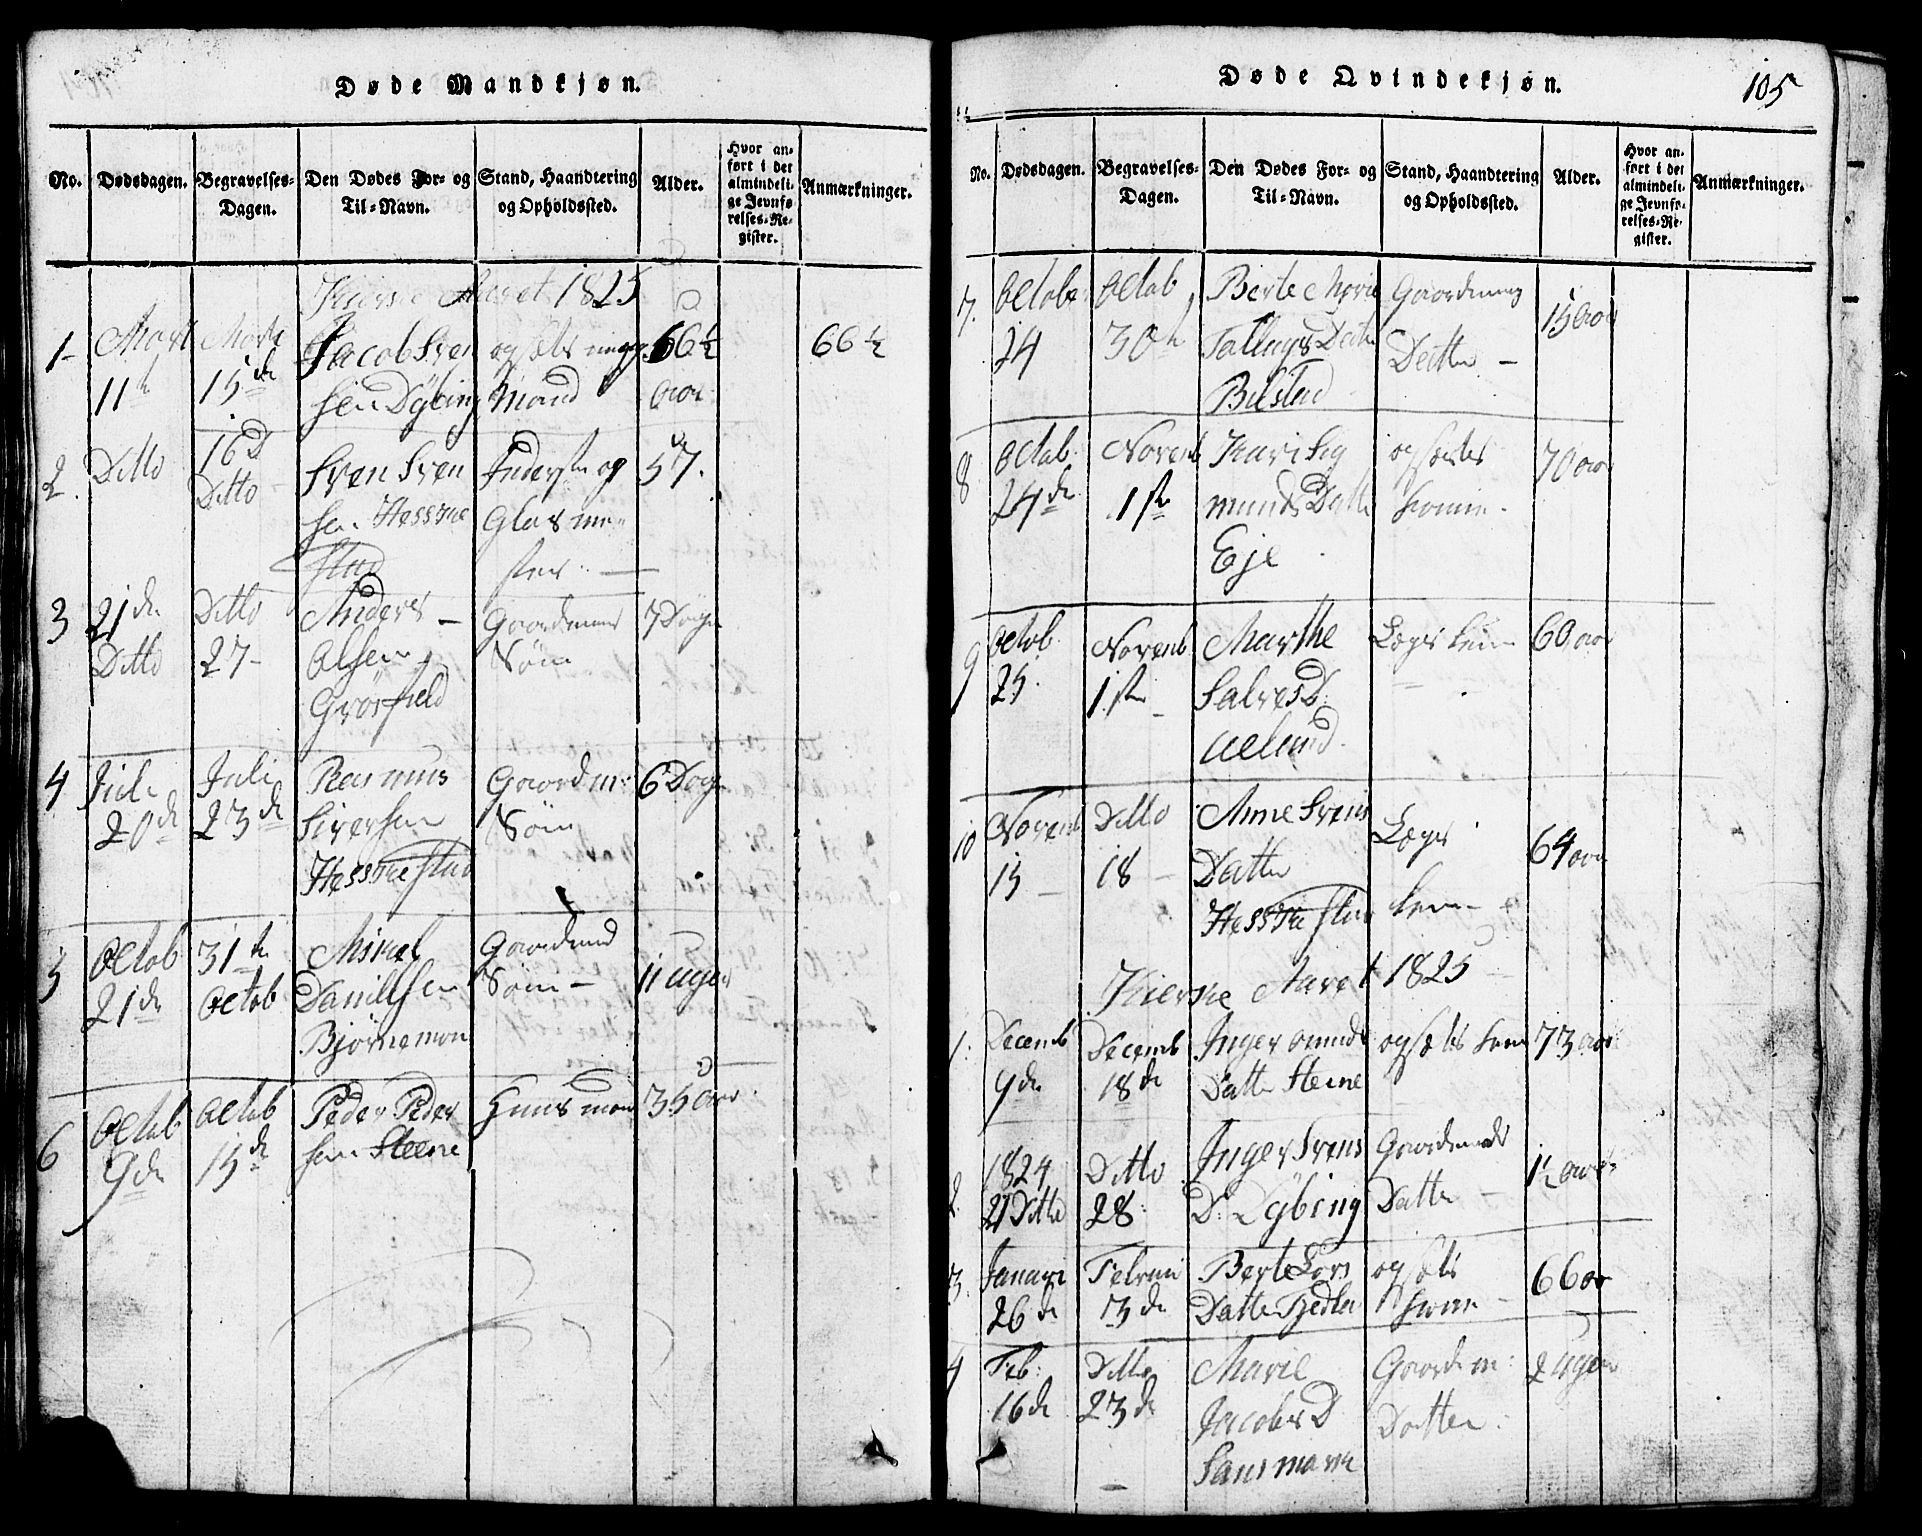 Døde Mandkjøn.
No. Dødsdagen. Begravelses-Dagen. Den Dødes For- og Til-Navn. Stand, Haandtering og Opholdssted. Alder. Hvor anført i det almindelige Jevnførelses-Register. Anmærkninger.
Aaret 1825
1- 11te 15de Jacob Svensen Dÿbing Mand 66½ aar 66½
2. Ditto 16d Ditto Svend Svensen Hesskestad og Glasmester 57.
3 21de Ditto Ditto 27- Anders Olsen Grøsfield Søn 7 Dage
4 Juli 20de Juli 23de Rasmus Siversen Hesskestad Gaardm: Søn 6 Dage
5 Octob 21de 31te Octob Mikel Danilsen Bjørnemon Søn - 11 uger
6 Octob 9de Octob 15de Peder Pedersen Steene Huusmand 35 aar
Døde Qvindekjøn.
105
No. Dødsdagen. Begravelses-Dagen. Den Dødes For- og Til-Navn. Stand, Haandtering og Opholdssted. Alder. Hvor anført i det almindelige Jevnførelses-Register. Anmærkninger.
7. October 24 Octob 30te Berte Marie Datter Bilstad Datter - 15 aar
8 Octob. 24de Novemb 1ste Kari Sigmunds Datter Eje kone. 70 aar
9 Octob. 25. Novemb 1ste Marthe Salves D: Aelund Lægs Lem 60 aar
10 Novemb 15 - Ditto 18 - Anne Svens Datter Hesskestad Lægs Lem - 64 aar
Aaret 1825
1. Decemb 9de Decemb 18de Inger Omunds Datter Steene kone 73 aar
2. 1824 21 Ditto Ditto 28. Inger Svens D: Dÿbing Gaardmands Datter - 1½ aar
3. Januari 26de Februari 3de Berte Lars Datter kone - 66 aar
4 Feb: 16de Ditto 23de Marie Jacobs D Sansmark Gaardm: Datter. 2 Uger